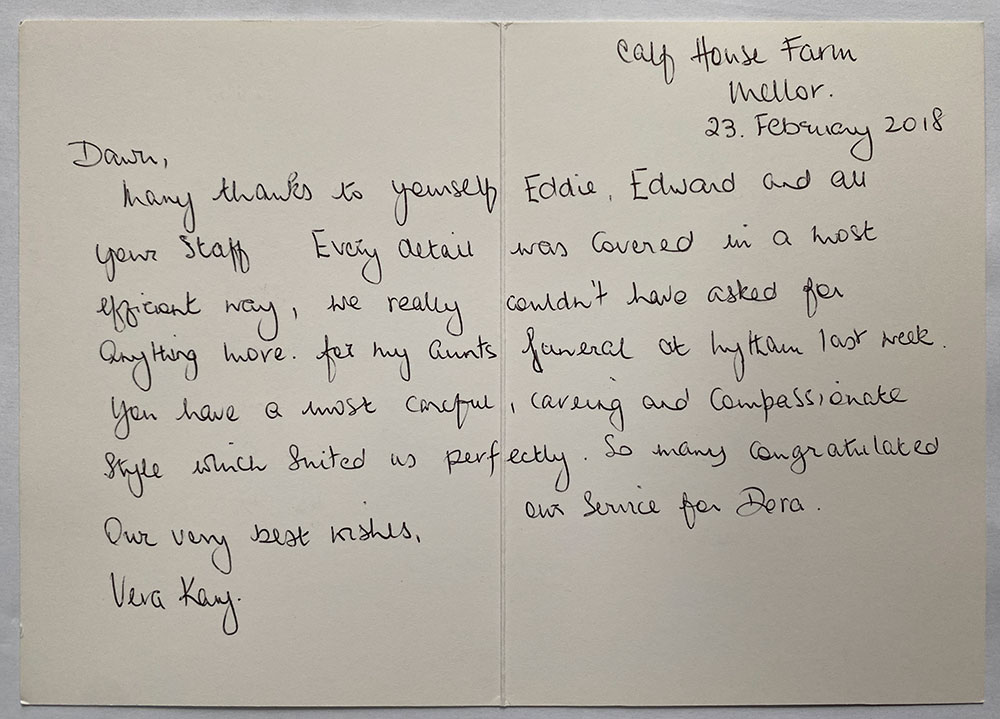 Calf House Farm
Mellor.
23. February 2018
Dawn,
Many thanks to yourself Eddie, Edward and all
your Staff Every detail was covered in a most
efficient way, we really couldn't have asked for
anything more. for my aunts funeral at Lytham last week.
You have a most careful, careing and compassionate
style which suited us perfectly. So many congratulated
our service for Dora.
Our very best wishes,
Vera Kay.